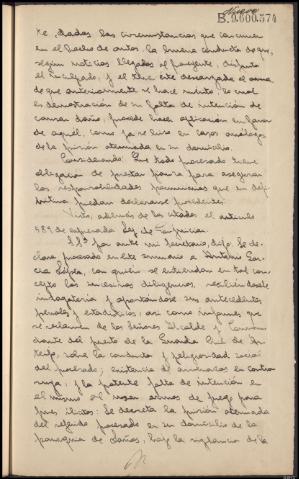 Nueve
B.9.600.574
te, dadas las circunstancias que concurren
en el hecho de autos, la buena conducta de que,
según noticias llegadas al presente, disfruta
el inculpado, y el tener éste descargada el arma
de que anteriormente se hace mérito, lo cual
es demostración de su falta de intención de
causar daño, procede hacer aplicación en favor
de aquel, como ya se hizo en casos análogos
de la prisión atenuada en su domicilio.
Considerando: Que todo procesado tiene
obligación de prestar fianza para asegurar
las responsabilidades pecuniarias que en defi
nitiva puedan declararse procedentes.
Visto, además de los citados el artículo
589 de expresada Ley de Enjuiciar.
S.Sª por ante mi Secretario, dijo: Se de-
clara procesado en este sumario a Antonio Gar-
cía, con quien se entiendan en tal con-
cepto las sucesivas diligencias, recibiéndosele
indagatoria y aportándose sus antecedentes
penales y estadísticos, así como informes que
se reclamen de los Señores Alcalde y Coman
dante del puesto de la Guardia Civil de
sobre la conducta y peligrosidad social
del procesado; existencia de
y la patente falta de intención en
el mismo de usar armas de fuego para
fines ilícitos. Se decreta la prisión atenuada
del referido procesado en su domicilio de la
parroquia de Baños, bajo la vigilancia de la